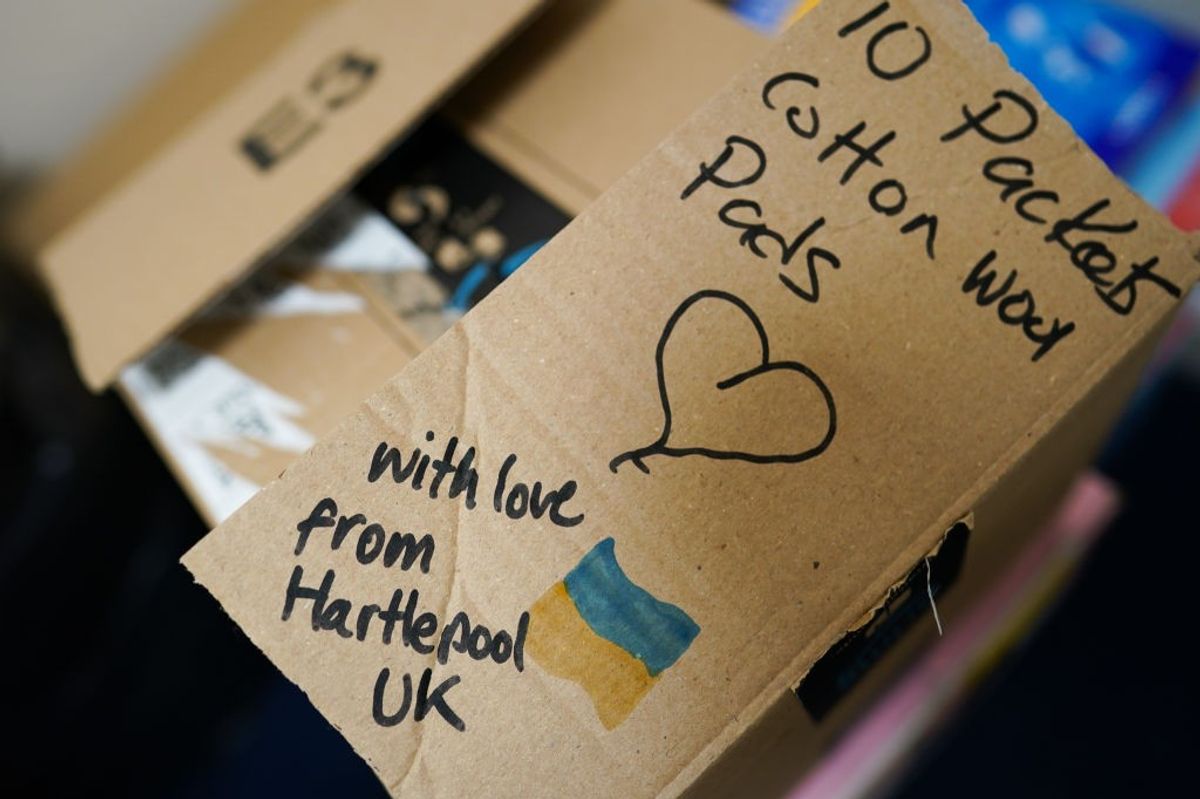 E3
10 Packets
Cotton Wool
Pads
with love
from
Hartlepool
UK